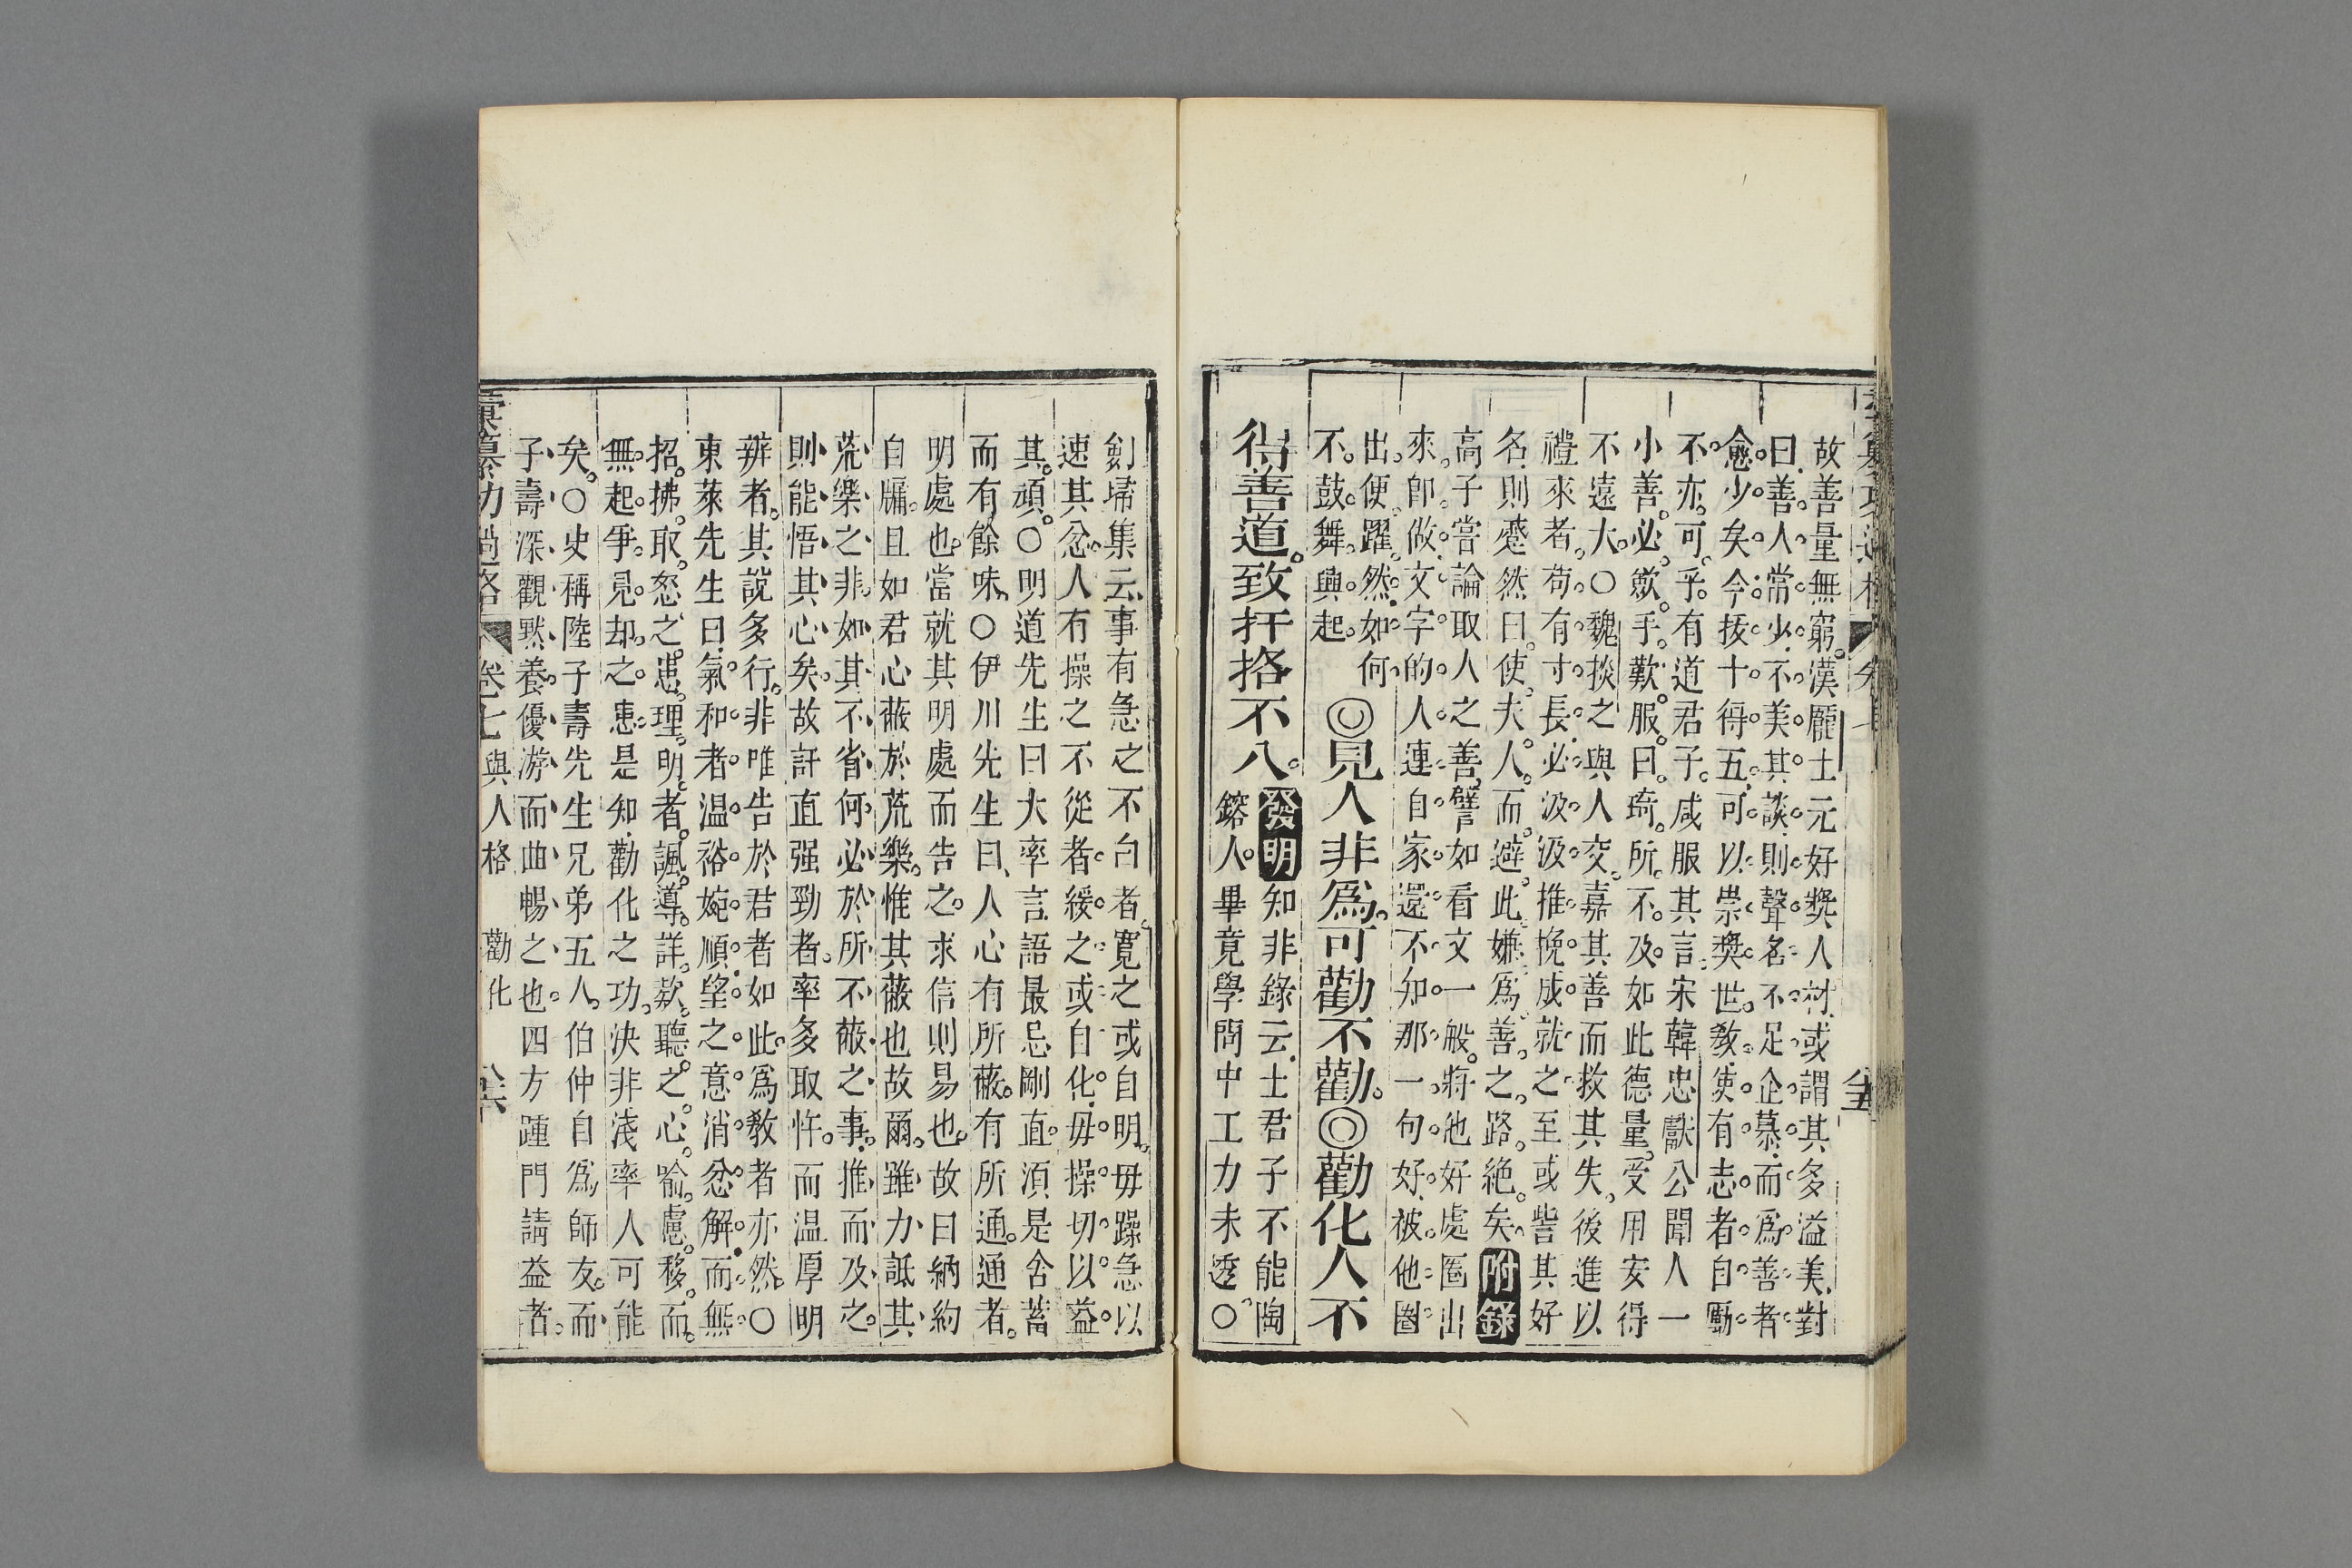 故善量無窮漢龐士元好奬人材或謂其多溢美對
曰善人常少不美其談則聲名不足企慕而爲善者
愈少矣今拔十得五可以崇奬世敎使有志者自勵
不亦可乎有道君子咸服其言宋韓忠獻公聞人一
小善必歛手歎服曰琦所不及如此德量受用安得
不遠大〇魏掞之與人交嘉其善而救其失後進以
禮來者苟有寸長必汲汲推挽成就之至或訾其好
名則蹙然曰使夫人而避此嫌爲善之路絶矣附錄
高子嘗論取人之善譬如看文一般將他好處圈出
來卽做文字的人連自家還不知那一句好被他圈
出便躍然如何
不鼓舞興起
◎見人非爲可勸不勸◎勸化人不
得善道致扞挌不入發明
知非錄云士君子不能陶
鎔人畢竟學問中工力未透〇
劍埽集云事有急之不白者寛之或自明毋躁急以
速其忿人有操之不從者緩之或自化毋操切以益
其頑〇明道先生曰大率言語最忌剛直須是含蓄
而有餘味〇伊川先生曰人心有所蔽有所通通者
明處也當就其明處而告之求信則易也故曰納約
自牖且如君心蔽於荒樂惟其蔽也故爾雖力詆其
荒樂之非如其不省何必於所不蔽之事推而及之
則能悟其心矣故訐直强勁者率多取忤而温厚明
辨者其說多行非唯告於君者如此爲敎者亦然〇
東萊先生曰氣和者温裕婉順望之意消忿解而無
招拂取怒之患理明者諷導詳款聽之心喻慮移而
無起爭見却之患是知勸化之功決非淺率人可能
矣〇史稱陸子壽先生兄弟五人伯仲自爲師友而
子壽深觀默養優游而曲暢之也四方踵門請益者
彙纂功過格 卷七 與人格 勸化